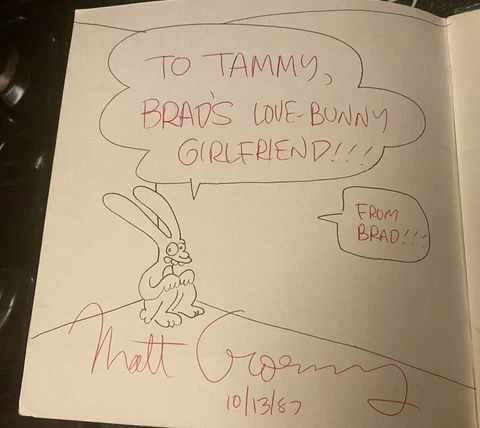 TO TAMMY,
BRAD'S LOVE-BUNNY
GIRLFRIEND!!!
FROM
BRAD!!!
Matt Groening
10/13/87